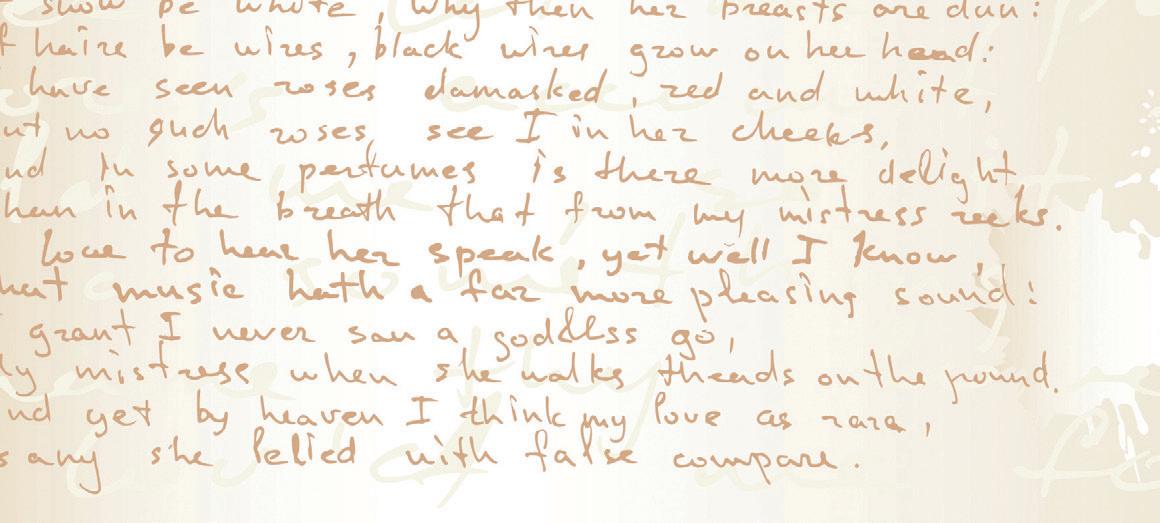 show be white, why then her breasts are dun:
f haire be wires, black wires grow on her head:
have seen roses damasked, red and white,
ut no such roses see I in her cheeks,
nd in some perfumes is there more delight
han in the breath that from my mistress reeks.
love to hear her speak, yet well I know,
hat music hath a far more pleasing sound:
grant I never saw a goddess go,
ly mistress when she walks theads on the pound.
nd yet by heaven I think my love as rara,
s any she lelied with false compare.